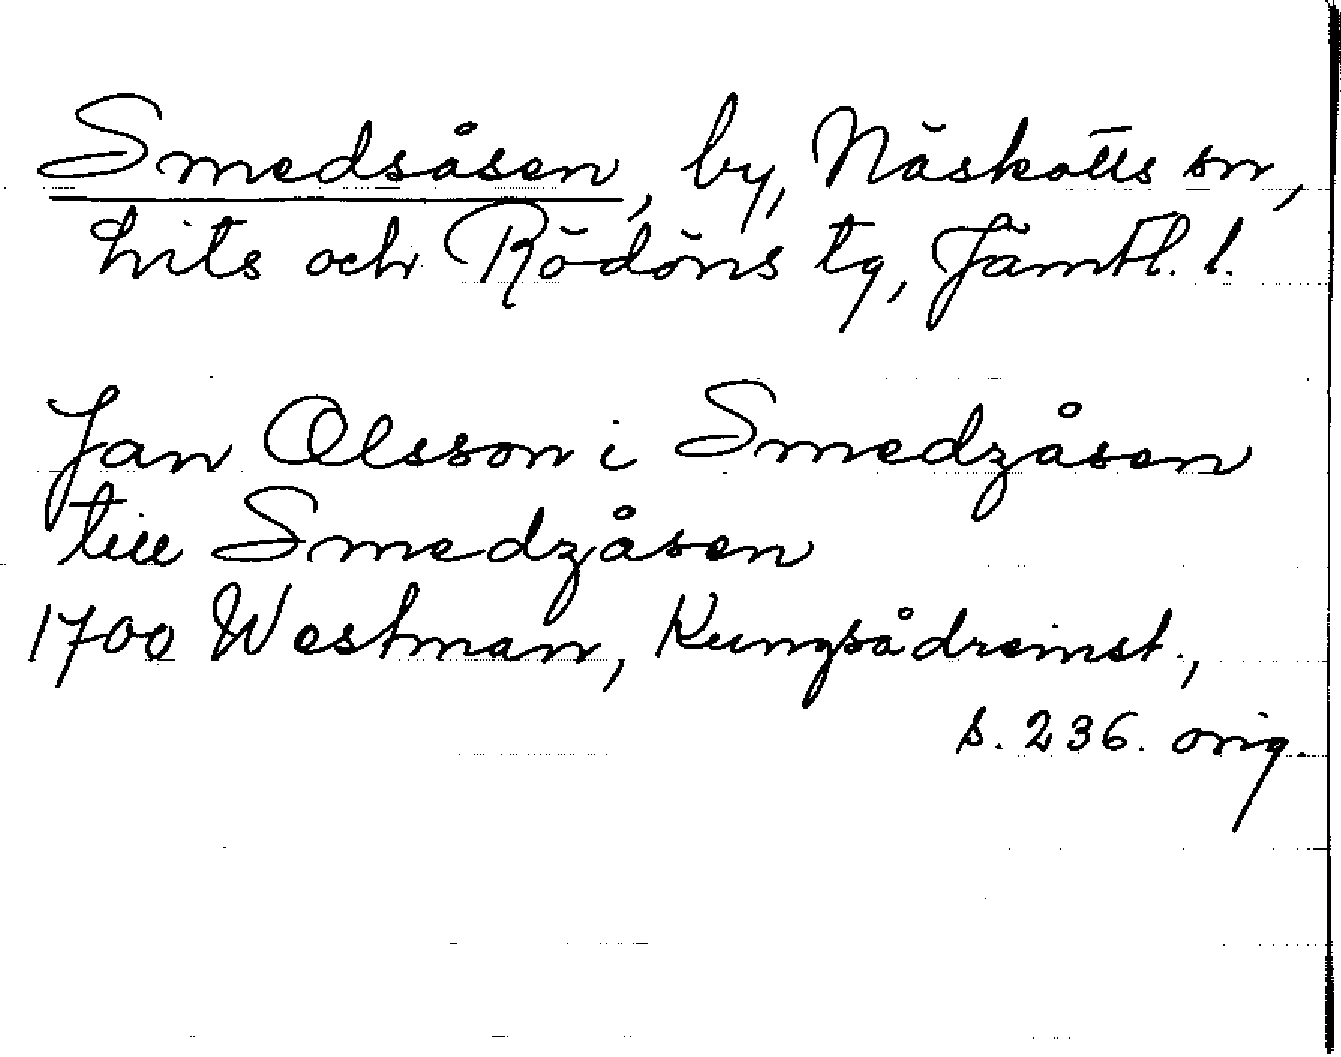 Smedsåsen, by, Näskotts sn,
hits och Rödöns tg, Jämtl. l.
Jan Olsson i Smedzåsen
till Smedzåsen
1700 Westman, Kungsådreinst.,
s. 236. orig.